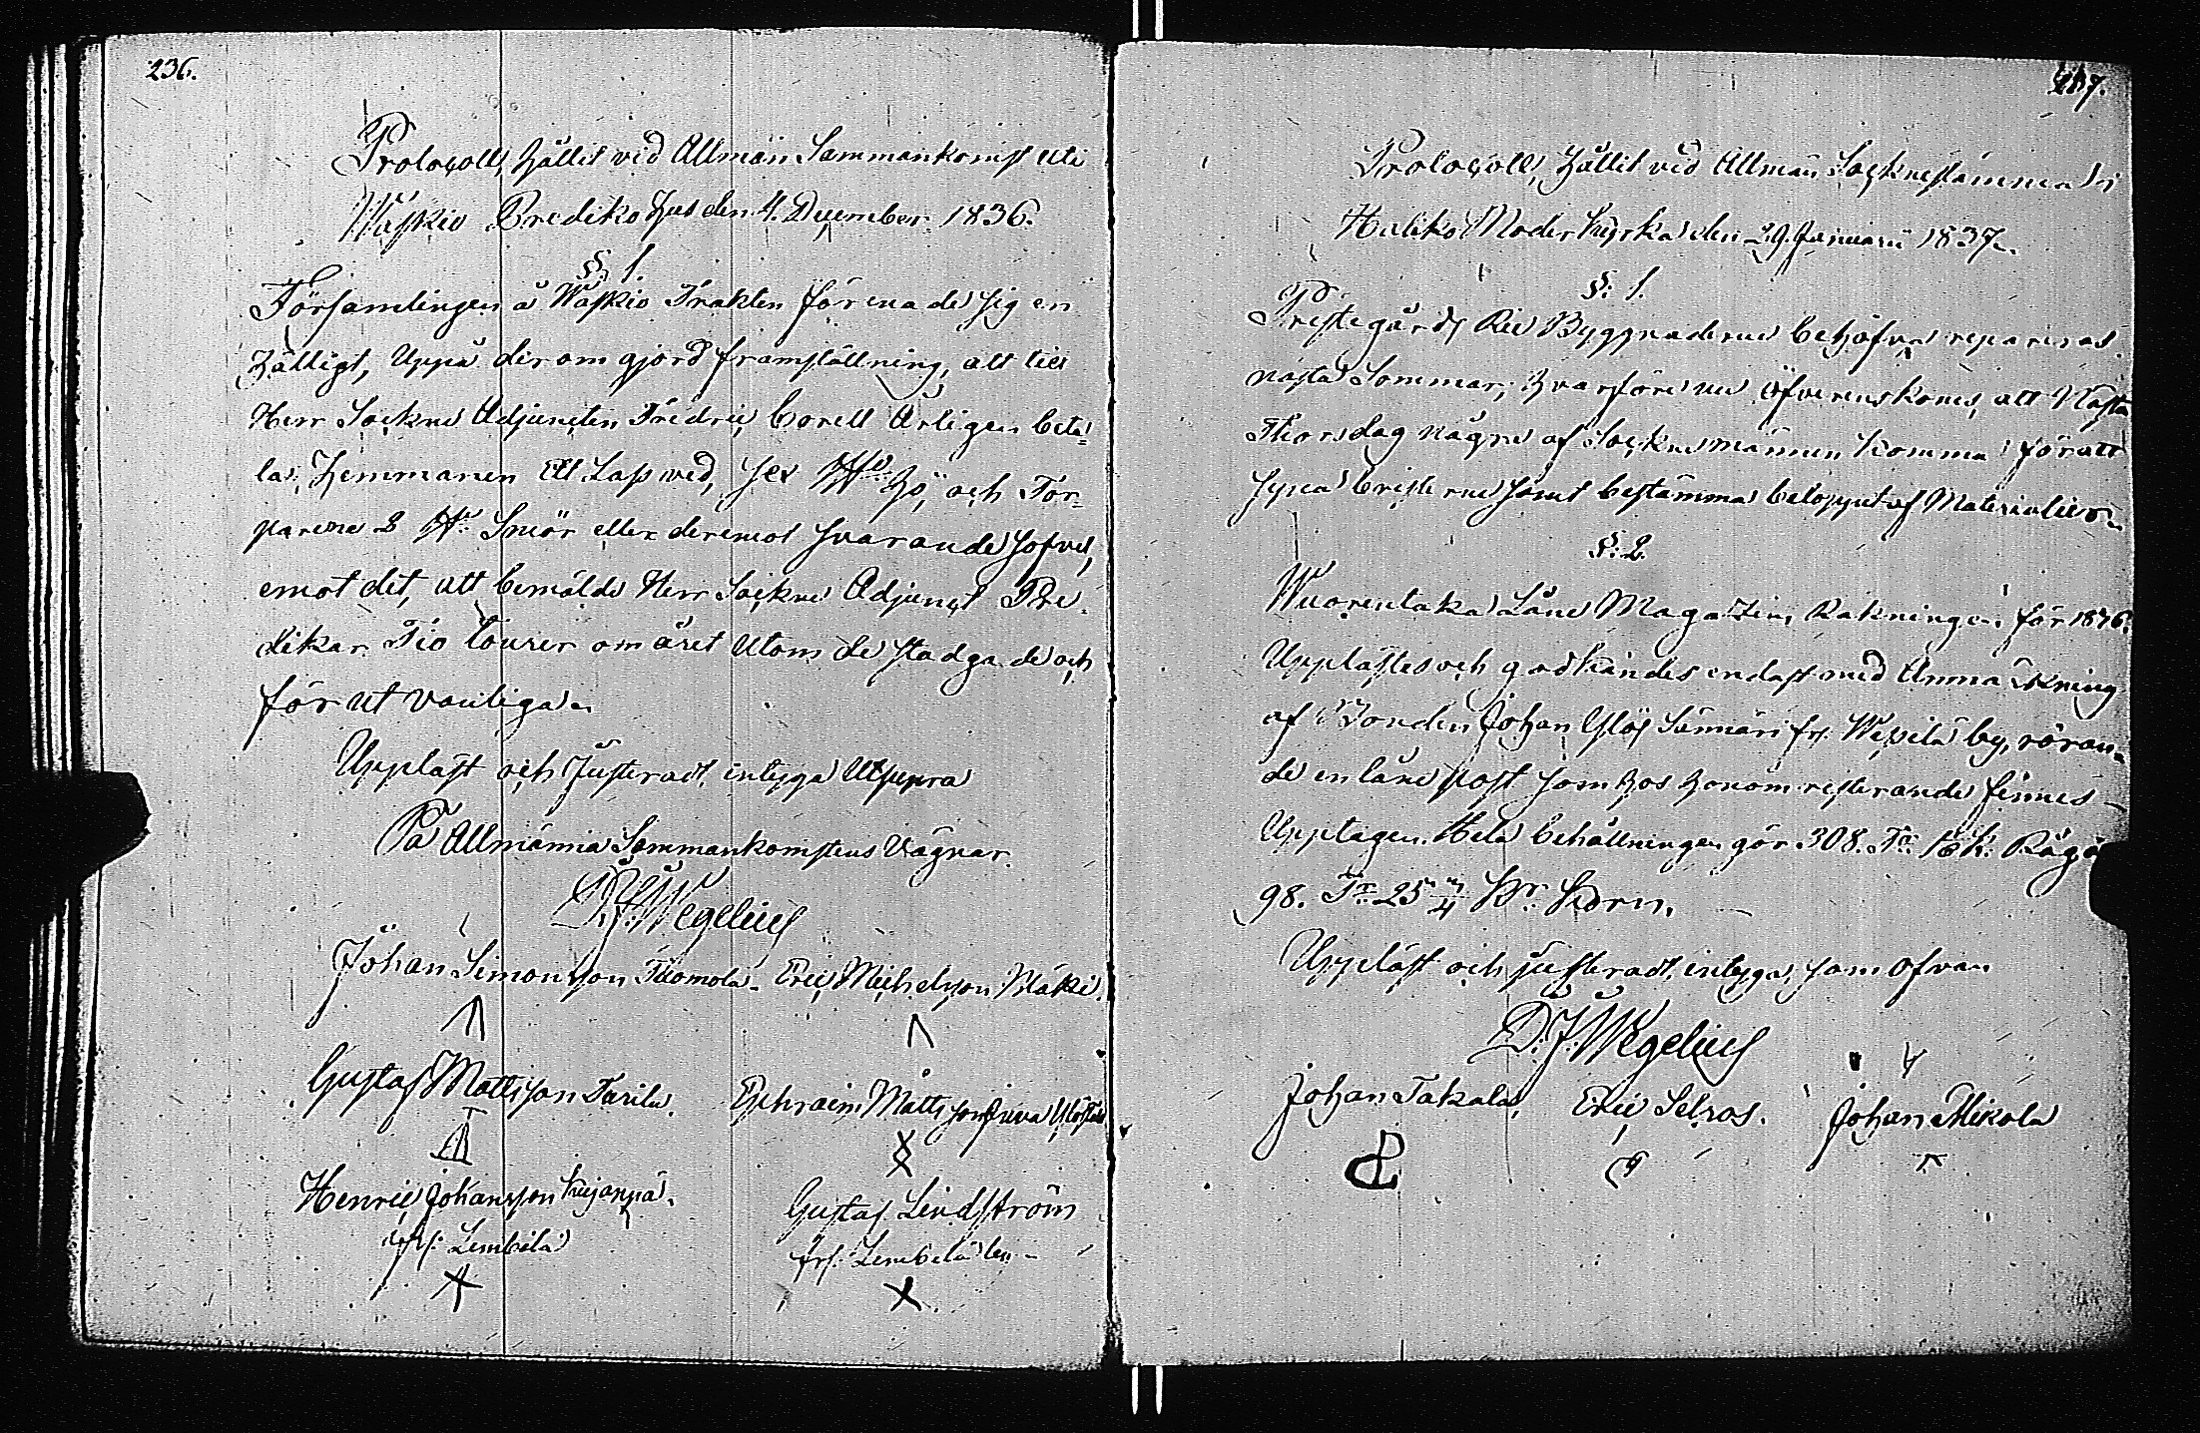 236.
Protocoll, hållit vid Allmän Sammankomst uti
Waskio Prediko hus den 4. December 1836.
§. 1.
Församlingen å Waskio Trakten förenade sig en
hälligt, Uppå derom gjord framställning, att till
Herr Sockne Adjuncten Fredric Corell Årligen beta-
la, Hemmanen Ett Lass ved, sex hö, och Tor-
parene 2 Smör eller deremot svarande
emot det, att bemälde Herr Sockne Adjunct Pre-
dikar Tio tourer om året Utom de stadgade och
förut vanliga.
Uppläst och Justeradt, intyga Utsupra
På Allmänna Sammankomstens Vägnar.
D. J. Wegelius
Johan Simonsson Tuomola. Eric Michelsson Mäki.
Gustaf Mattsson Tarila. Ephraim Mattsson
Henric Johansson Kujanpä.
frs: Lembilä
Gustaf Lindström
frs: Lembilä by
237.
Protocoll, hållit vid Allmän Socknestämma i
Haliko Moder Kyrka den 29. Januarii 1837.
§: 1.
Prestegårds Rie Byggnaderne behöfva repareras
nästa Sommar; hvarföre nu öfverenskoms, att Nästa
Thorsdag någre af Socknemännen komma för att
synea bristerne samt bestämma beloppet af Materialier.
§: 2.
Wuorentaka Låne Magazins Räkningen för 1836.
Upplästes och godkändes endast med Anmärkning
af Bonden Johan Ylös Sännäri frs. Wexilä by, röran-
de en låne post som hos honom resterande finnes
Upptagen. Hela behållningen gör 308. Tr. K. Råg o
98. Tr. 25 3/4 Kr. Korn.
Uppläst och justeradt, intyga, som ofvan
D. J. Wegelius
Johan Takala, Eric Selros. Johan Mikola